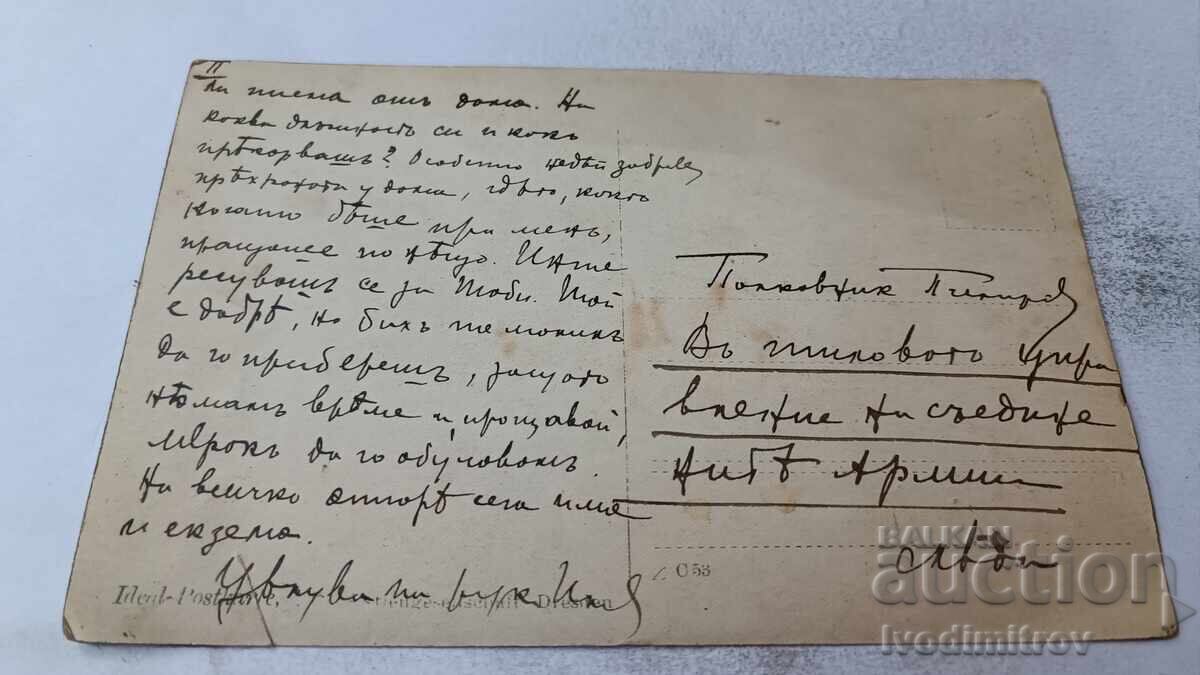 II
ли писма отъ дома. На
каква длъжность си и какъ
прѣкарвашъ? Особенно недѣй забравя
прѣхраната у дома, гдѣто, както
когато бѣше при менъ,
пращаше по нѣщо. Инте
ресувашъ се за Тоби. Той
е добрѣ, но бихъ те молилъ
да го приберешъ, защото
нѣмамъ врѣме и, прощавай,
мѣрокъ да го обуловамъ.
На всичко отгорѣ сега има
и екзема.
Цѣлува ти рук
Полковникъ
Въ тиловото упра
вление на съедине
нитѣ Армии
слѣди
Ideal-Postkarte,
Dresden
C 53
BALKAN
auction
Ivodimitrov